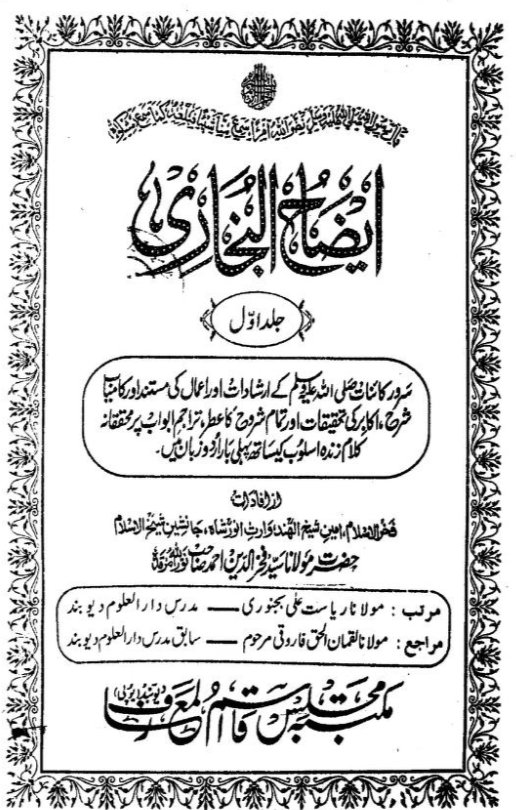 قال رسول الله صلى الله عليه وسلم نضر الله امرأ سمع منا شيئا فبلغه كما سمعه
ایضاح البخاری
جلد اوّل
سرور کائنات صلی اللہ علیہ وسلم کے ارشادات اور اعمال کی مستند اور کامیاب
شرح، اکابر کی تحقیقات اور تمام شروح کا عطر، تراجم ابواب پر محققانہ
کلام زندہ اسلوب کیساتھ پہلی بار اردو زبان میں۔
از افادات
فخر الاسلام، امین شیخ الہند وارث انور شاہ، جانشین شیخ الاسلام
حضرت مولانا سید فخر الدین احمد صاحب نور اللہ مرقدہ
مرتب : مولانا ریاست علی بجنوری ــــ مدرس دار العلوم دیوبند
مراجع : مولانا لقمان الحق فاروقی مرحوم ــــ سابق مدرس دار العلوم دیوبند
مکتبہ مجلس قاسم المعارف دیوبند (یوپی)